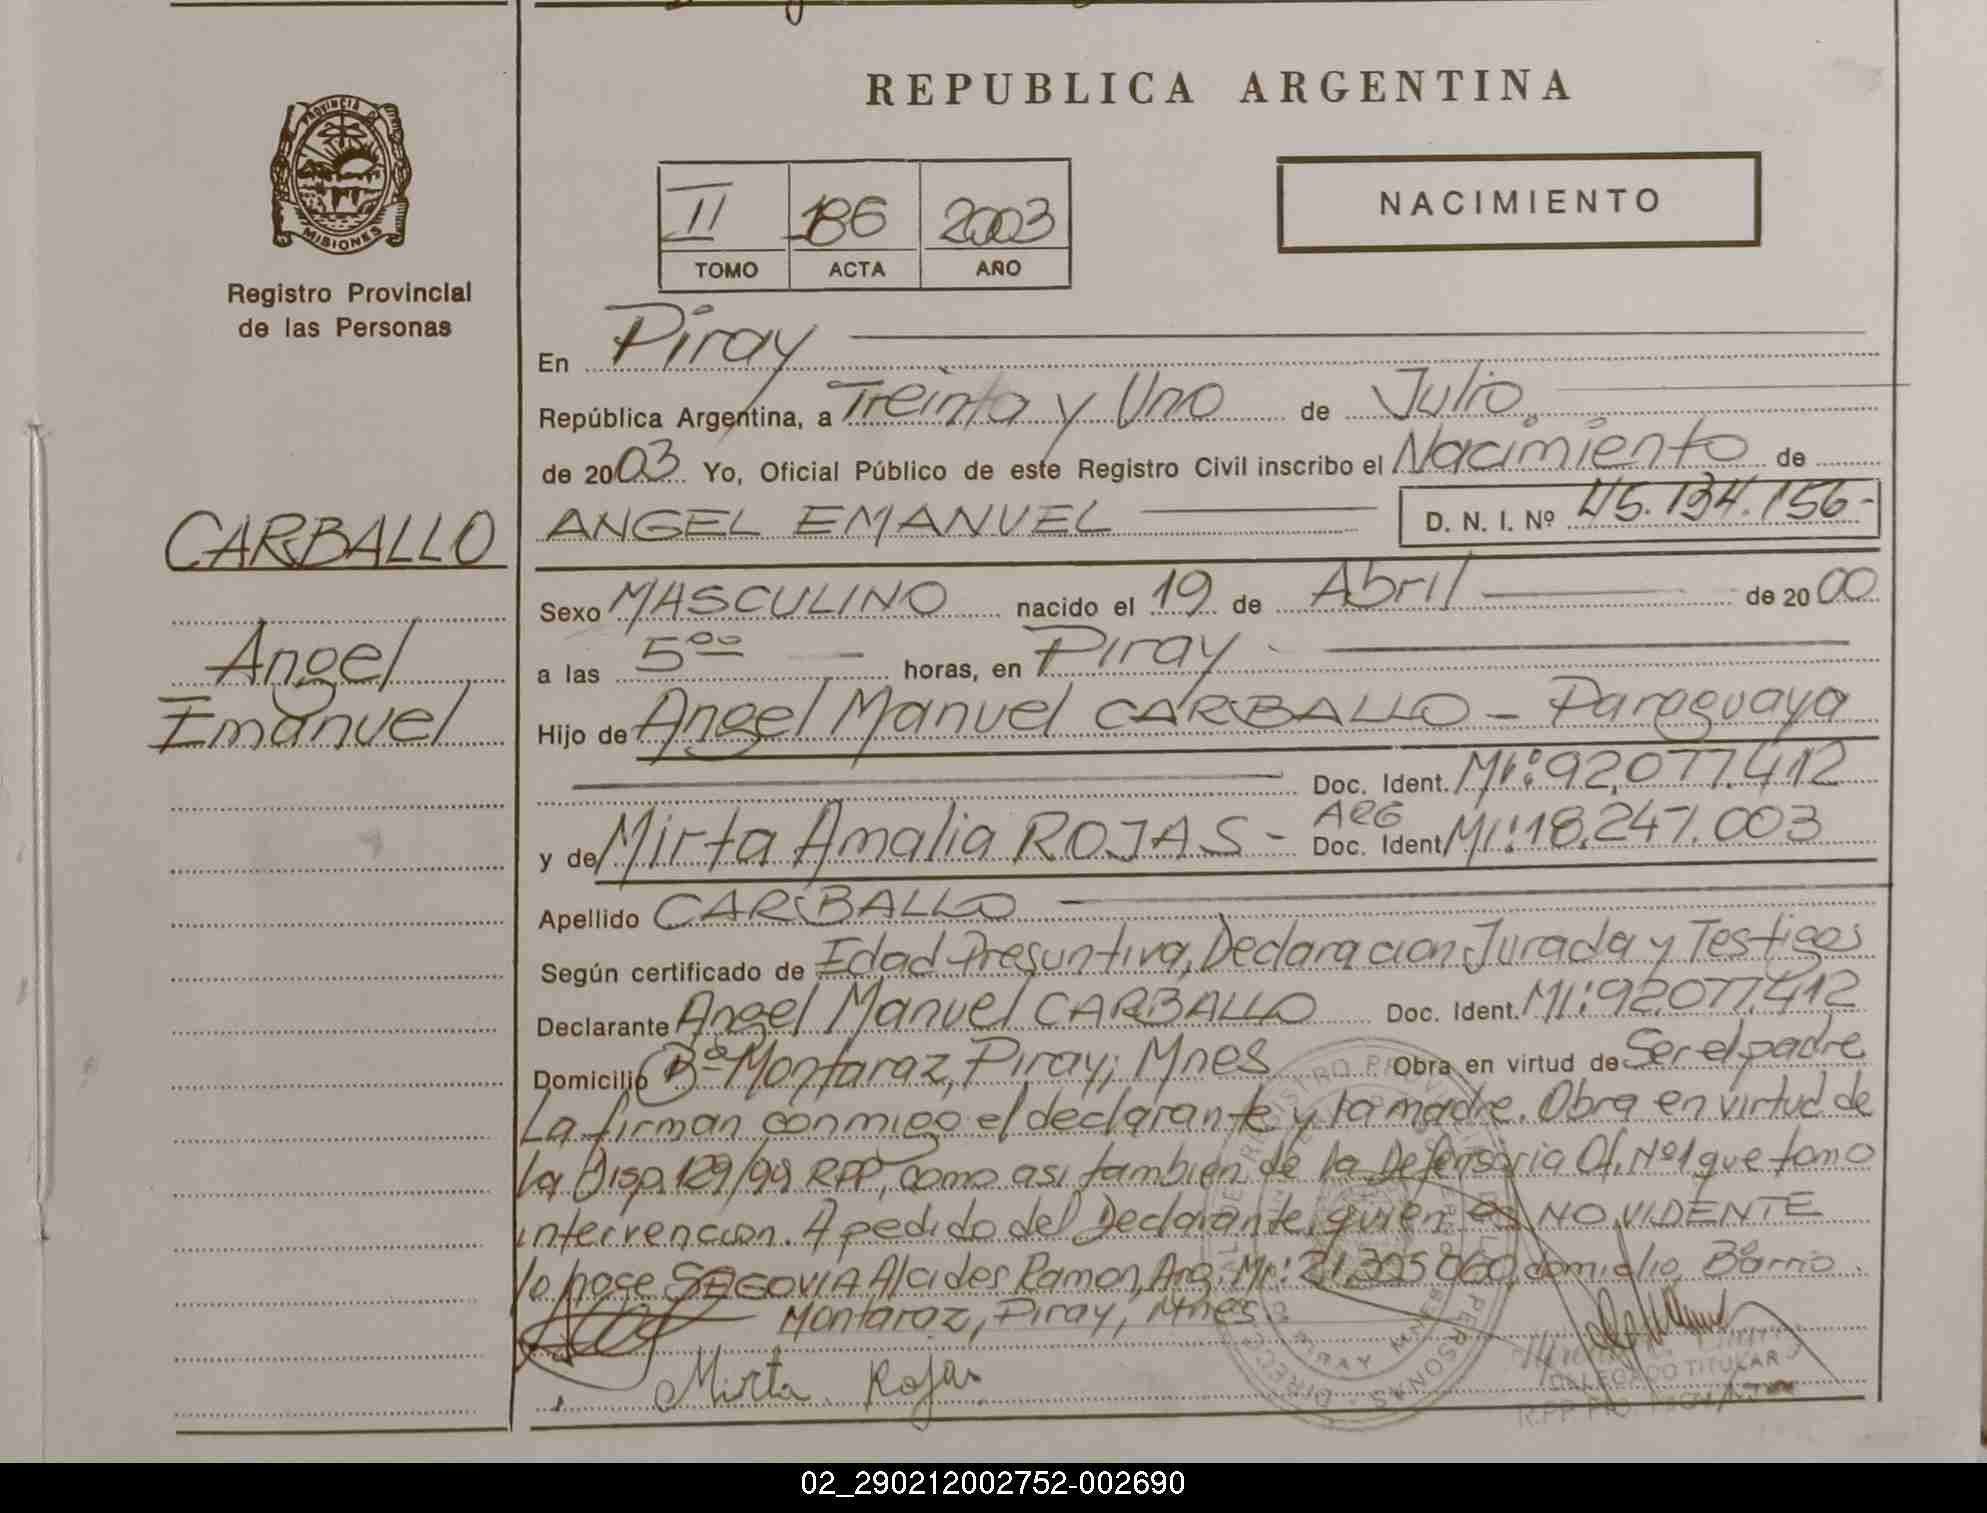 REPUBLICA ARGENTINA
PROVINCIA DE
MISIONES
Registro Provincial
de las Personas
NACIMIENTO
II 186 2003
TOMO ACTA AÑO
En Piray
República Argentina, a Treinta y Uno de Julio
de 2003 Yo, Oficial Público de este Registro Civil inscribo el Nacimiento de
CARBALLO
Angel
Emanuel
ANGEL EMANUEL D. N. I. Nº 45.134.156-
Sexo MASCULINO nacido el 19 de Abril de 2000
a las 5ºº horas, en Piray
Hijo de Angel Manuel CARBALLO - Paraguaya
Doc. Ident. MI: 92.077.412
y de Mirta Amalia ROJAS - ARG Doc. Ident MI: 18.247.003
Apellido CARBALLO
Según certificado de Edad Presuntiva, Declaracion Jurada y Testigos
Declarante Angel Manuel CARBALLO Doc. Ident. MI: 92.077.412
Domicilio Bº Montaraz, Piray, Mnes Obra en virtud de Ser el padre
La firman conmigo el declarante y la madre. Obra en virtud de
la Disp. 129/99 RPP, como asi tambien de la Defensoria Of. Nº1 que tomo
intervencion. A pedido del Declarante, quien es NO VIDENTE
lo hace SEGOVIA Alcides Ramon, Arg. MI: domicilio Barrio
Montaraz, Piray, Mnes
Mirta Rojas
DELEGADO TITULAR
02_290212002752-002690